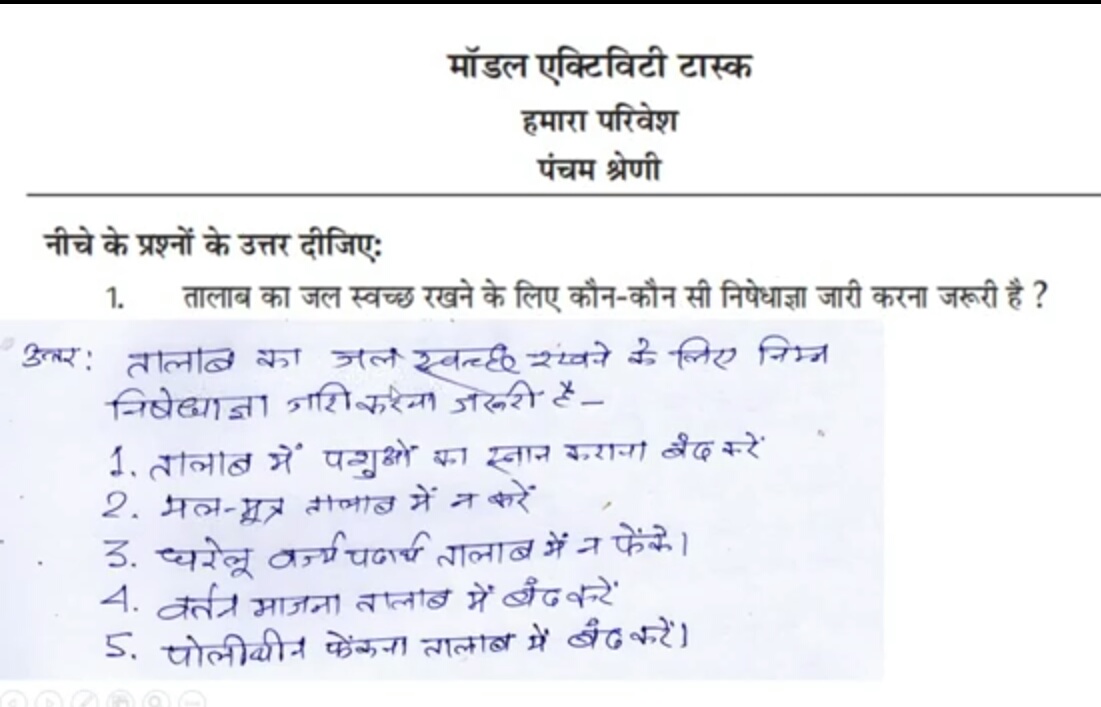 मॉडल एक्टिविटी टास्क
हमारा परिवेश
पंचम श्रेणी
नीचे के प्रश्नों के उत्तर दीजिए:
1. तालाब का जल स्वच्छ रखने के लिए कौन-कौन सी निषेधाज्ञा जारी करना जरूरी है ?
उत्तर: तालाब का जल स्वच्छ रखने के लिए निम्न
निषेधाज्ञा जारी करना जरूरी है –
1. तालाब में पशुओं का स्नान कराना बंद करें
2. मल-मूत्र तालाब में न करें
3. घरेलू वर्ज्य पदार्थ तालाब में न फेंके।
4. बर्तन माजना तालाब में बंद करें
5. पोलीथीन फेंकना तालाब में बंद करें।